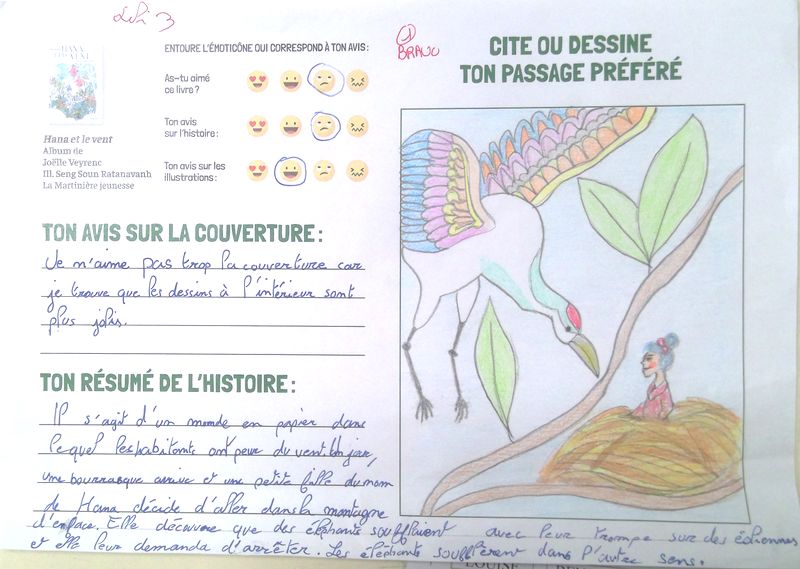 ① BRAVO
HANA
ET LE VENT
Hana et le vent
Album de
Joëlle Veyrenc
Ill. Seng Soun Ratanavanh
La Martinière jeunesse
ENTOURE L'ÉMOTICÔNE QUI CORRESPOND À TON AVIS :
As-tu aimé
ce livre ?
Ton avis
sur l'histoire :
Ton avis sur les
illustrations :
TON AVIS SUR LA COUVERTURE :
Je n'aime pas trop la couverture car
je trouve que les dessins à l'intérieur sont
plus jolis.
TON RÉSUMÉ DE L'HISTOIRE :
Il s'agit d'un monde en papier dans
lequel les habitants ont peur du vent. Un jour,
une bourrasque arrive et une petite fille du nom
de Hana décide d'aller dans la montagne
d'en face. Elle découvre que des éléphants soufflaient avec leur trompe sur des éoliennes
et elle leur demanda d'arrêter. Les éléphants soufflèrent dans l'autre sens.
CITE OU DESSINE
TON PASSAGE PRÉFÉRÉ
LOUISE